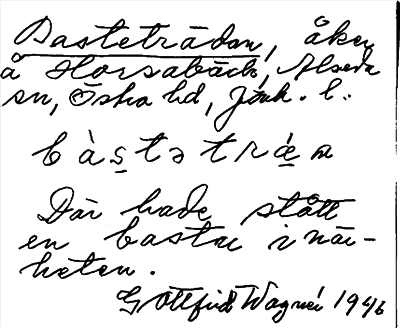 Basteträdan, åker
å Horsabäck, Alseda
sn, Östra hd, Jönk. l.
bàs̱tətrǽn
Där hade stått
en bastu i när-
heten.
Gottfrid Wagnér 1946